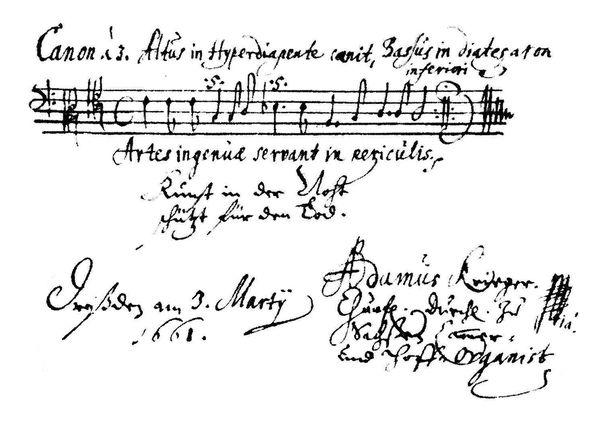 Canon à 3. Altus in Hyperdiapente canit, Bassus in diatessaron
inferiori
Artes ingenuæ servant in periculis.
Kunst in der Noht
schützt für den Tod.
Dreßden am 3. Martij
1661.
Adamus Krieger.
Churf. Durchl. zu
Sachsen Cammer-
und Hoff Organist